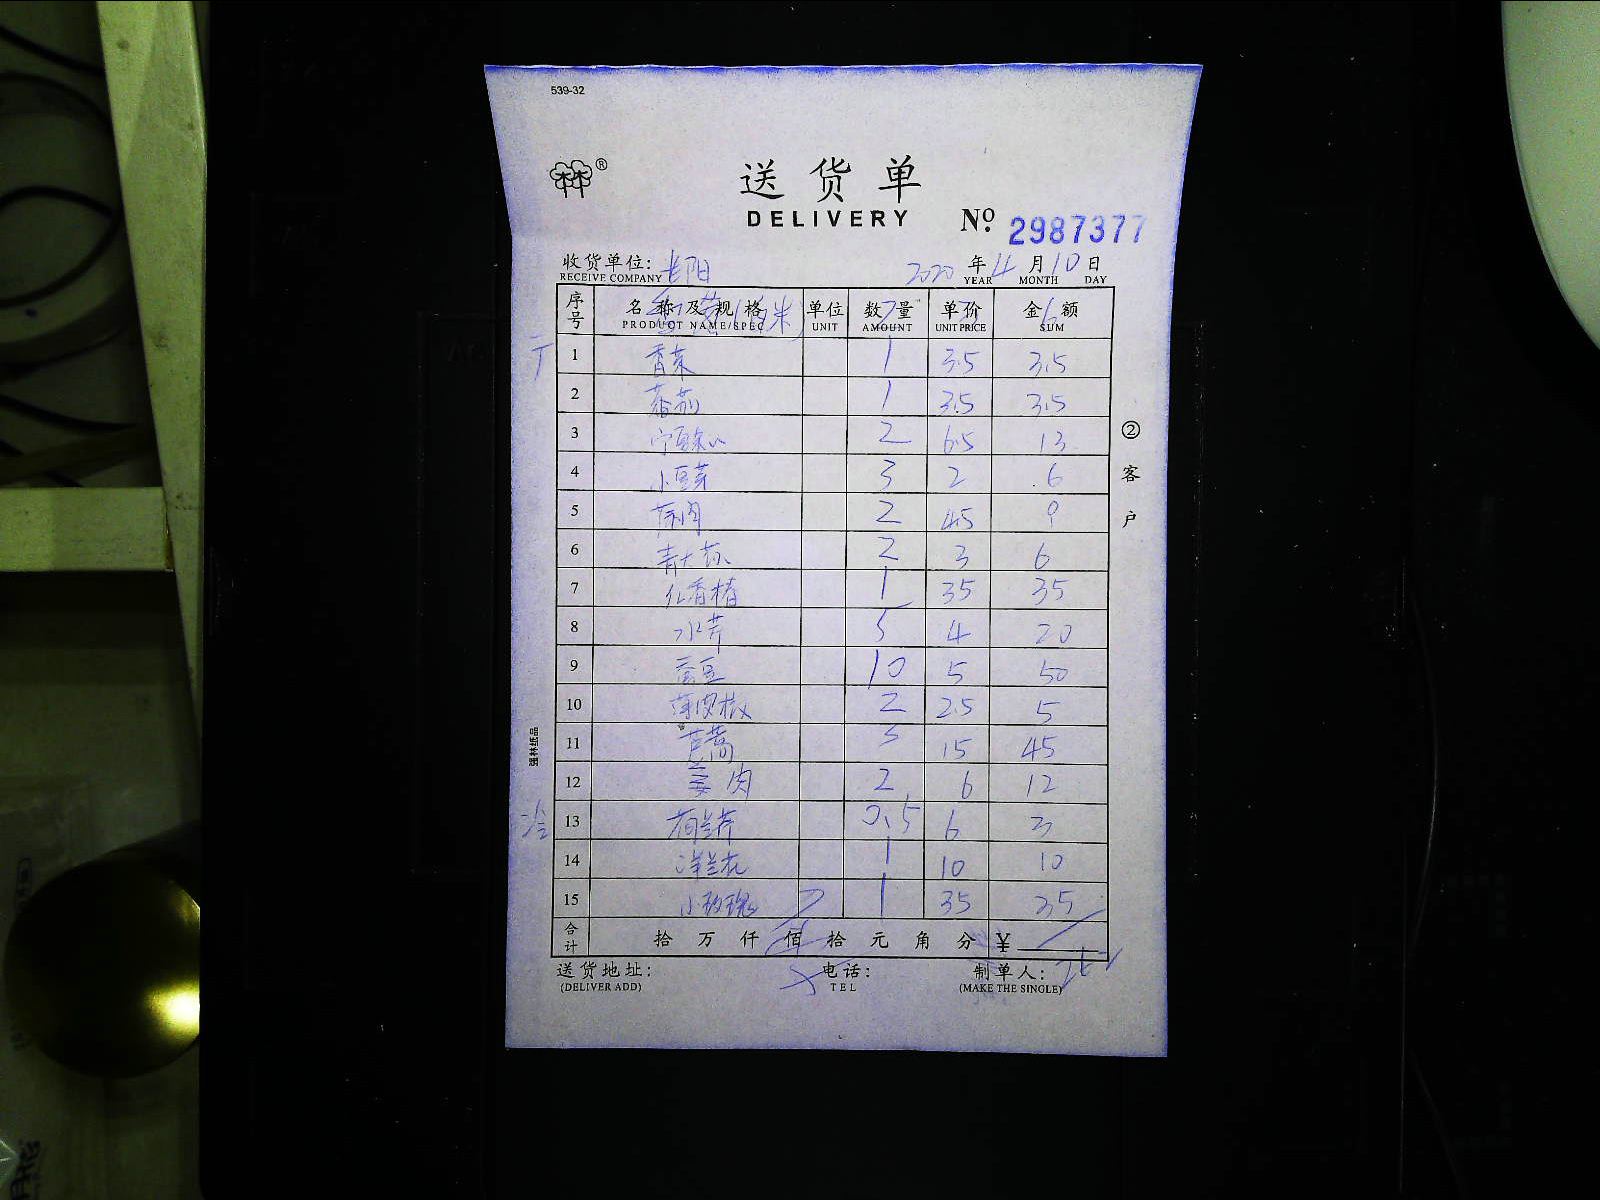 539-32
®
送货单
DELIVERY
№ 2987377
收货单位: 长阳 2020 年 4 月 10 日
RECEIVE COMPANY YEAR MONTH DAY
序号 名称及规格 单位 数量 单价 金额
PRODUCT NAME/SPEC UNIT AMOUNT UNIT PRICE SUM
1 香菜 1 3.5 3.5
2 番茄 1 3.5 3.5
3 2 6.5 13
4 小豆芽 3 2 6
5 蒜肉 2 4.5 9
6 青大蒜 2 3 6
7 红香椿 1 35 35
8 水芹 5 4 20
9 蚕豆 10 5 50
10 薄肉椒 2 2.5 5
11 芦蒿 3 15 45
12 姜肉 2 6 12
冷 13 荷兰芹 0.5 6 3
14 洋兰花 1 10 10
15 小玫瑰 1 35 35
合计 拾 万 仟 佰 拾 元 角 分 ¥
送货地址: 电话: 制单人:
(DELIVER ADD) TEL (MAKE THE SINGLE)
②客户
强林纸品